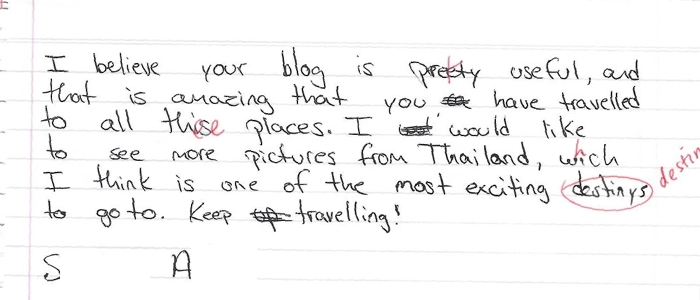 I believe your blog is pretty useful, and
that is amazing that you have travelled
to all these places. I would like
to see more pictures from Thailand, which
I think is one of the most exciting destinys destin
to go to. Keep travelling!
S A